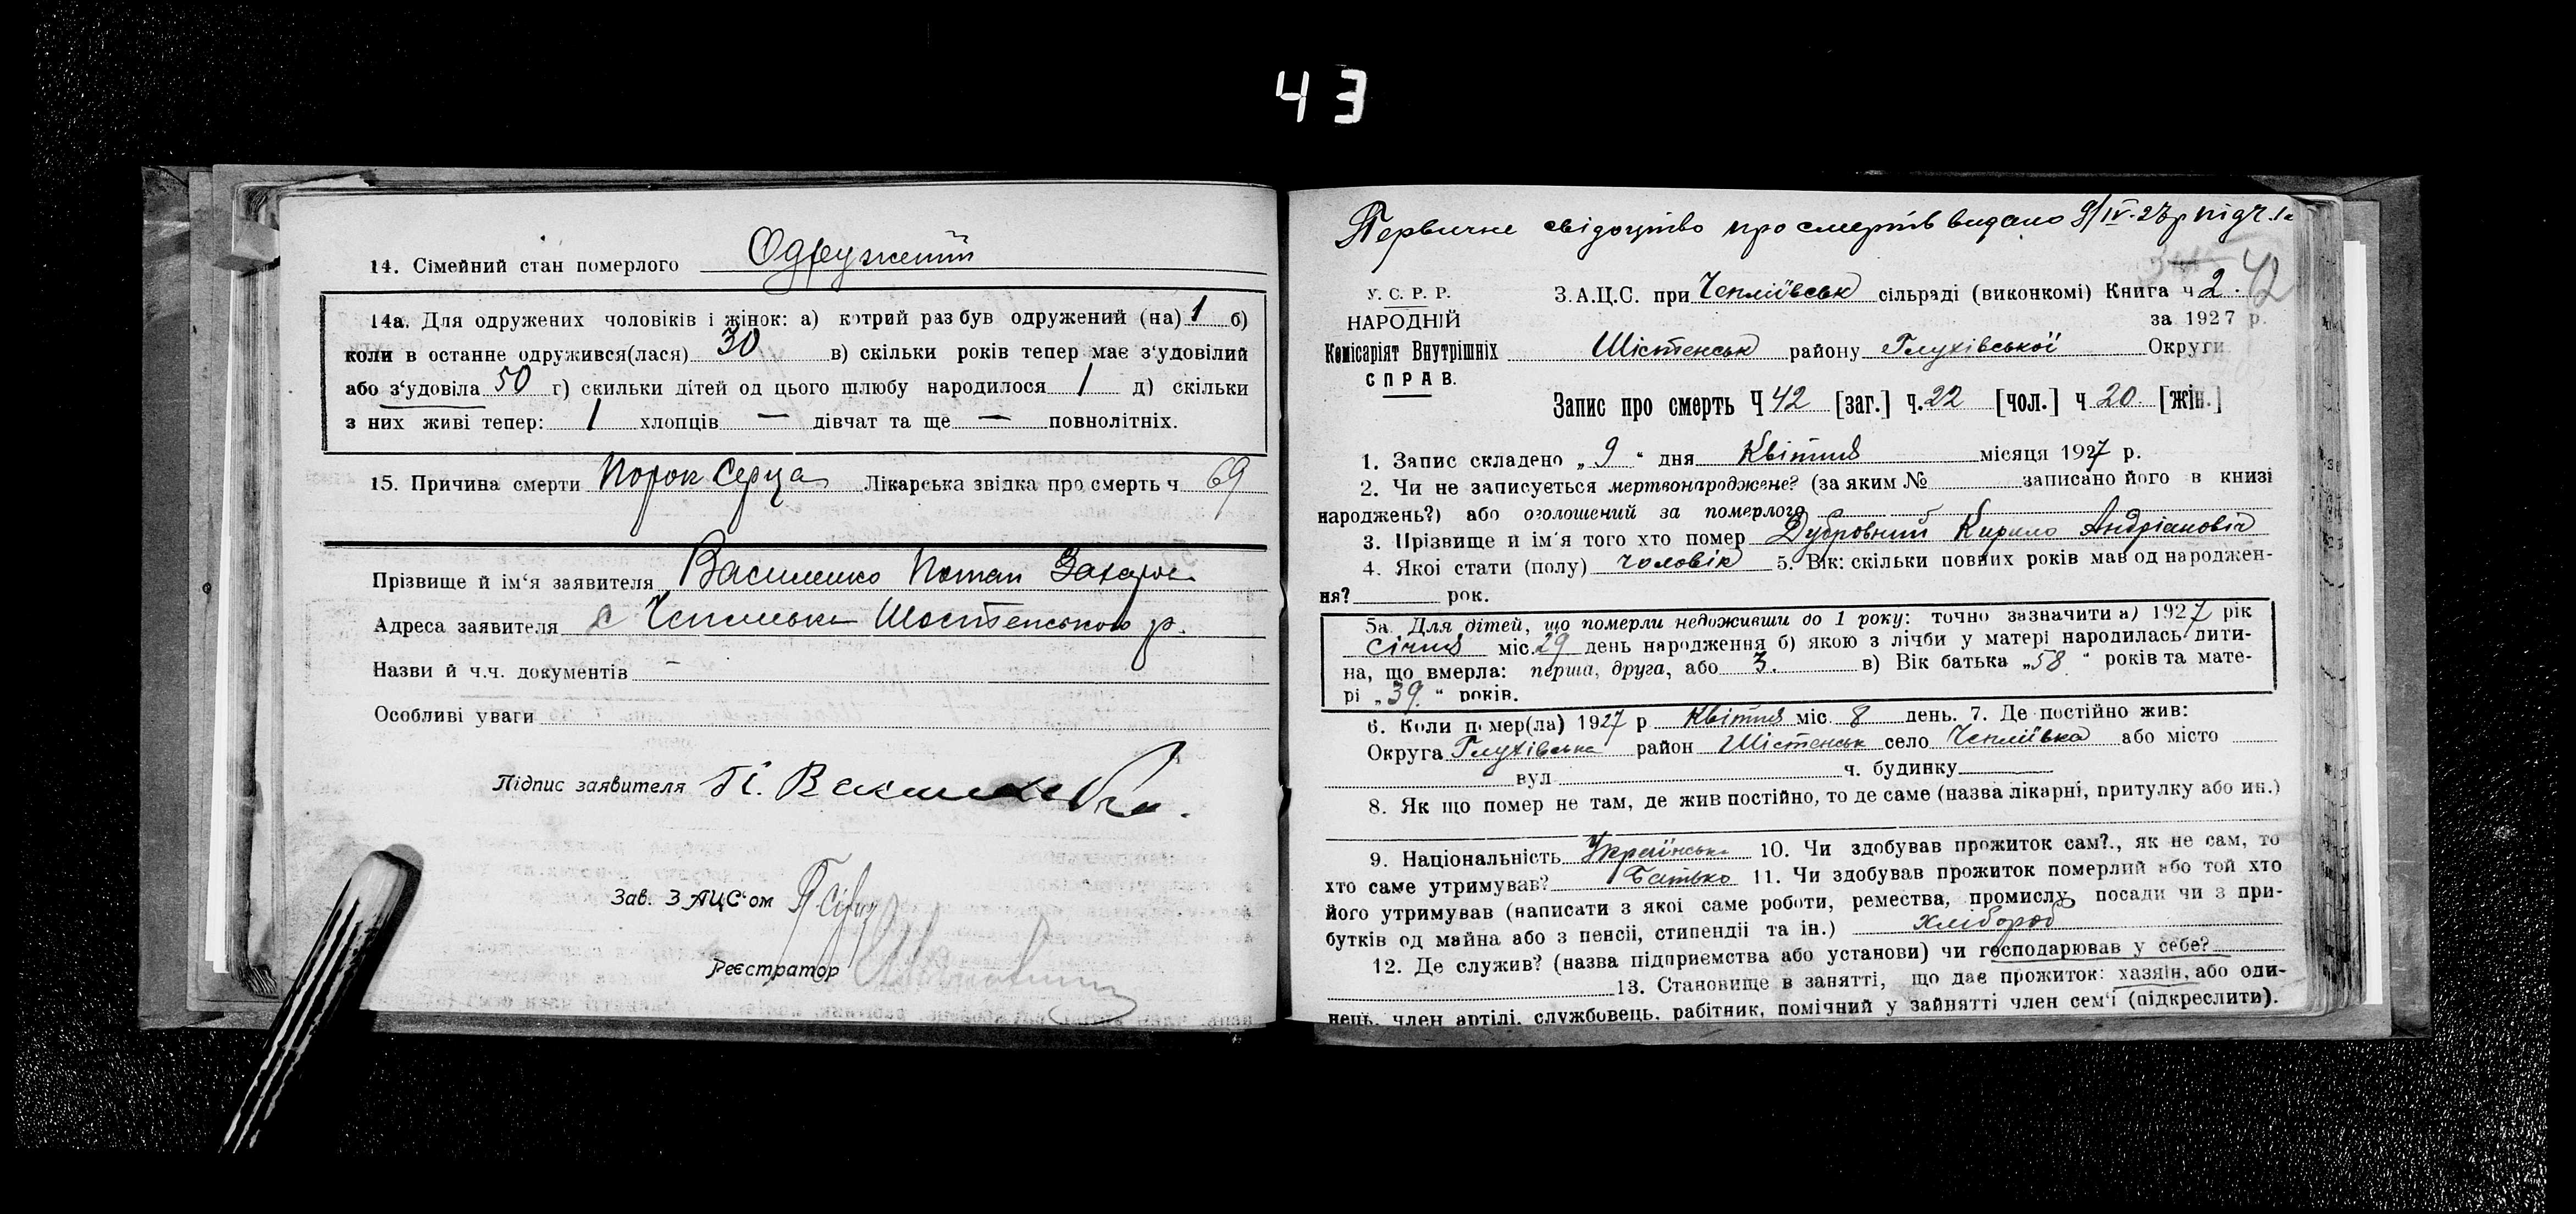 43
14. Сімейний стан померлого Одружений
14а. Для одружених чоловіків і жінок: а) котрий раз був одружений (на) 1 б)
коли в останнє одружився(лася) 30 в) скільки років тепер має з'удовілий
або з'удовіла 50 г) скильки дітей од цього шлюбу народилося 1 д) скільки
з них живі тепер: 1 хлопців — дівчат та ще — повнолітніх.
15. Причина смерти Порок Серца Лікарська звідка про смерть ч 69
Прізвище й ім'я заявителя Василенко Потап Захаров.
Адреса заявителя с Чепліївка Шостенського р.
Назви й ч.ч. документів —
Особливі уваги
Підпис заявителя П. Василенко.
Зав. ЗАЦС'ом
Реєстратор
Первичне свідоцтво про смерть видано 9/IV-27р під ч.
42
У. С. Р. Р.
НАРОДНІЙ
Комісаріят Внутрішніх
СПРАВ.
З.А.Ц.С. при Чепліївськ сільраді (виконкомі) Книга ч 2.
за 1927 р.
Шістенськ району Глухівської Округи
Запис про смерть Ч 42 [заг.] ч. 22 [чол.] ч 20. [жін.]
1. Запис складено „ 9 “ дня Квітня місяця 1927 р.
2. Чи не записуеться мертвонароджене? (за яким № записано його в книзі
народжень?) або оголошений за померлого
3. Прізвище й ім'я того хто помер Дубровний Кирило Андріановіч
4. Якої стати (полу) чоловік 5. Вік: скільки повних років мав од народжен-
ня? рок.
5а. Для дітей, що померли недоживши до 1 року: точно зазначити а) 1927 рік
Січня міс. 29 день народження б) якою з лічби у матері народилась дити-
на, що вмерла: перша, друга, або 3. в) Вік батька „58 “ років та мате-
рі „39. “ років.
6. Коли помер(ла) 1927 р Квітня міс 8 день. 7. Де постійно жив:
Округа Глухівська район Шістенськ село Чепліївка або місто
вул ч. будинку
8. Як що помер не там, де жив постійно, то де саме (назва лікарні, притулку або ин.)
9. Національність Українськ 10. Чи здобував прожиток сам?., як не сам, то
хто саме утримував? Батько 11. Чи здобував прожиток померлий або той хто
його утримував (написати з якої саме роботи, ремества, промислу, посади чи з при-
бутків од майна або з пенсіи, стипендії та ін.) хлібороб
12. Де служив? (назва підприемства або установи) чи господарював у себе?
13. Становище в занятті, що дає прожиток: хазяїн, або оди-
нець, член артілі, службовець, рабітник, помічний у зайнятті член сем'ї (підкреслити).